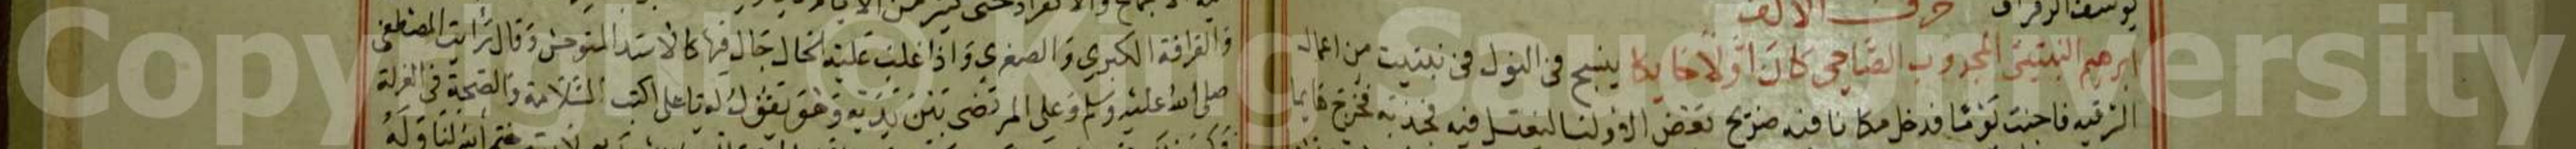 حرف الالف
ابرهيم النبتيتي المجذوب الصاحي كان اولا حايكا ينسج في النول في نبتيت من اعمال
الشرقيه فاجنب يوما فدخل مكانا فيه ضريح بعض الاوليا ليغتسل فيه فجذبه فخرج هايما
والقرافة الكبري والصغري واذا غلب عليه الحال جال فيها كالاسد المتوحش وقال رايت المصطفي
صلي الله عليه وسلم وعلي المرتضي بين يديه وهو يقول له يا علي اكتب السلامة والصحة في العزلة